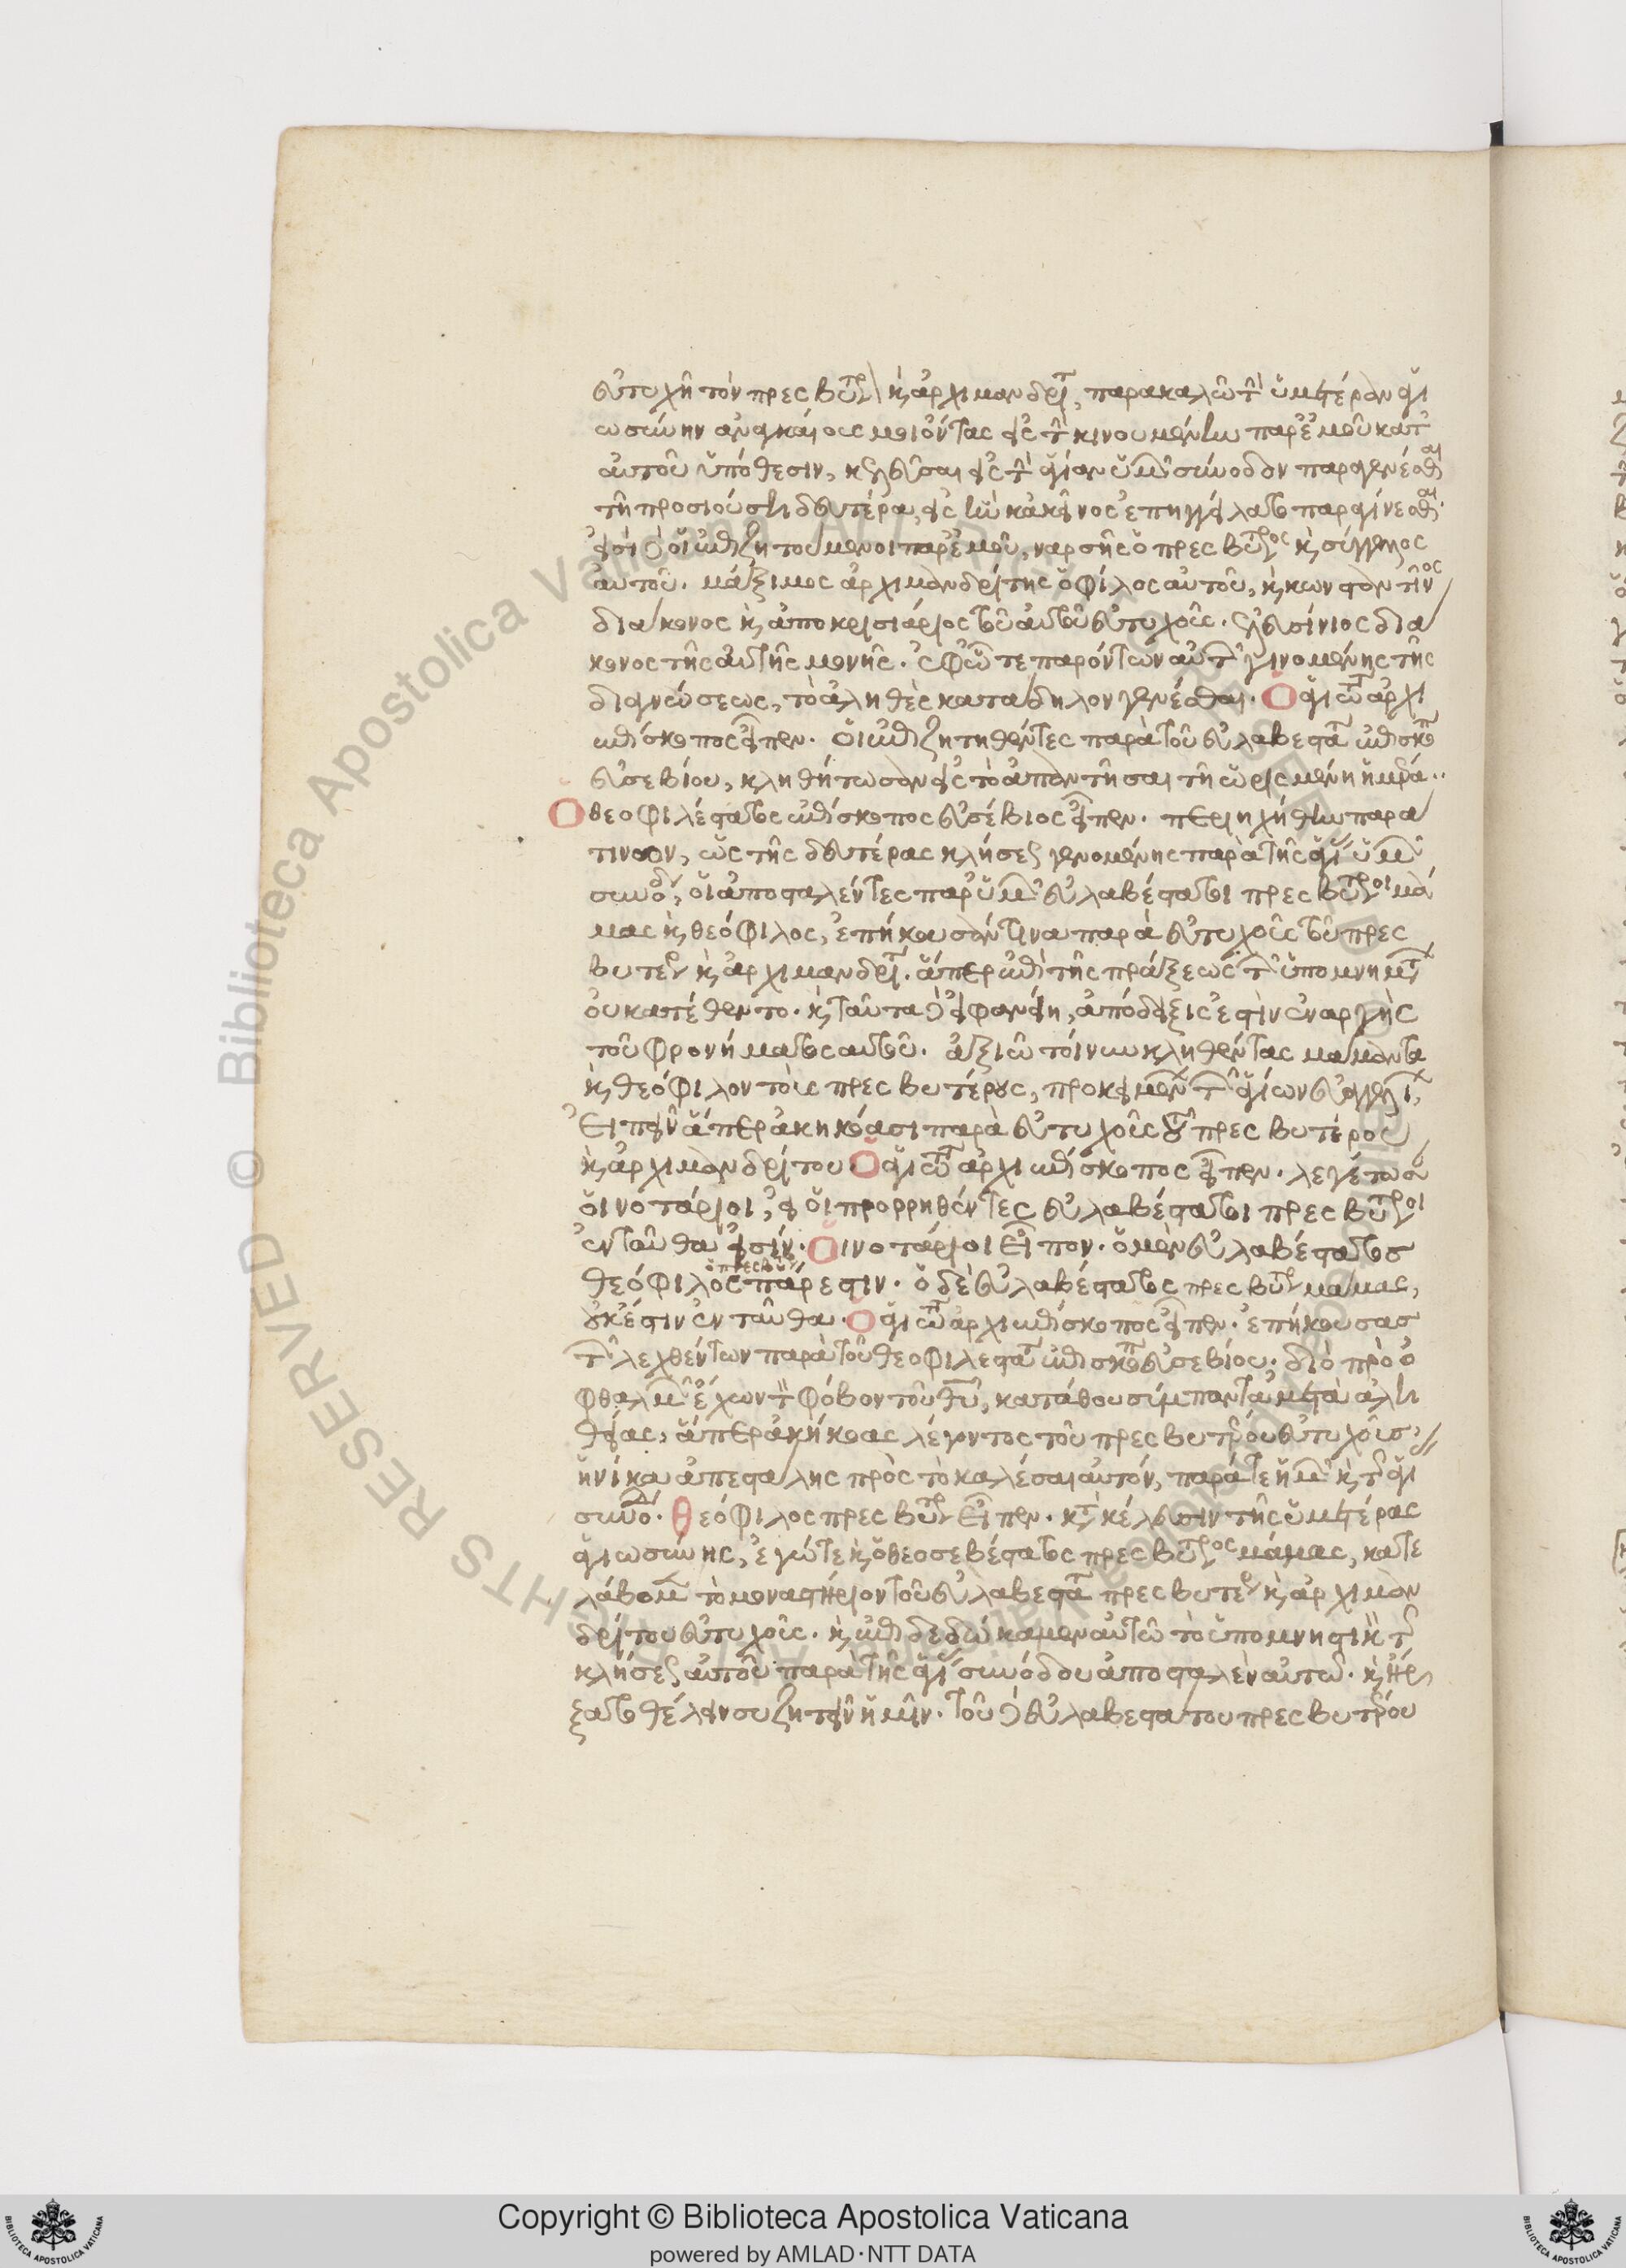 εὐτυχῆ τὸν πρεσβύτερον κ ἀρχιμανδρί, παρακαλῶ τὴν ὑμετέραν ἁγι
ωσύνην ἀναγκαίους μοι ὄντας εἰς τὴν κινουμένην παρ' ἐμοῦ κατ
αὐτοῦ ὑπόθεσιν, κελεῦσαι εἰς τὴν ἁγίαν ὑμῶν σύνοδον παραγενέσθαι
τῇ προσιούσῃ δευτέρα, εἰς ἣν κἀκεῖνος ἐπηγγείλατο παραγίνεσθαι.
εἰσὶ δὲ οἱ ἐπιζητούμενοι παρ' ἐμοῦ, ναρσῆς ὁ πρεσβύτερος κ σύγκελλος
αὐτοῦ. μάξιμος ἀρχιμανδρίτης ὁ φίλος αὐτοῦ, κ κωνσταντῖνος
διάκονος κ ἀποκρισιάριος τοῦ αὐτοῦ εὐτυχοῦς. ἐλευσίνιος διά
κονος τῆς αὐτῆς μονῆς. ἐφ' ᾧ τε παρόντων αὐτῶν γινομένης τῆς
διαγνώσεως, τὸ ἀληθὲς κατάδηλον γενέσθαι. Ὁ ἁγιώτ ἀρχι
επίσκοπος εἶπεν. οἱ ἐπιζητηθέντες παρὰ τοῦ εὐλαβεστάτ ἐπισκόπ
εὐσεβίου, κληθήτωσαν εἰς τὸ ἀπαντῆσαι τῇ ὡρισμένη ἡμέρα..
Ὁ θεοφιλέστατος ἐπίσκοπος εὐσέβιος εἶπεν. περιηχήθην παρά
τινων, ὡς τῆς δευτέρας κλήσεως γενομένης παρὰ τῆς ἁγίας ὑμῶν
συνόδου, οἱ ἀποσταλέντες παρ' ὑμῶν εὐλαβέστατοι πρεσβύτεροι μά
μας κ θεόφιλος, ἐπήκουσάν τινα παρὰ εὐτυχοῦς τοῦ πρεσ
βυτέρου κ ἀρχιμανδρίτ. ἅπερ ἐπὶ τῆς πράξεως τῶν ὑπομνημάτων
οὐ κατέθεντο. κ ταῦτα δὲ εἰ φανείη, ἀπόδειξις ἐστὶν ἐναργὴς
τοῦ φρονήματος αὐτοῦ. ἀξιῶ τοίνυν κληθέντας μάμαντα
κ θεόφιλον τοὺς πρεσβυτέρους, προκειμένων τῶν ἁγίων εὐαγγελίων,
εἰπεῖν ἅπερ ἀκηκόασι παρὰ εὐτυχοῦς τοῦ πρεσβυτέρου
κ ἀρχιμανδρίτου. Ὁ ἁγιώτ ἀρχιεπίσκοπος εἶπεν. λεγέτωσαν
οἱ νοτάριοι, εἰ οἱ προρρηθέντες εὐλαβέστατοι πρεσβύτεροι
ἐνταῦθα εἰσίν. Οἱ νοτάριοι εἶπον. ὁ μὲν εὐλαβέστατος
θεόφιλος ὁ πρεσβύ πάρεστιν. ὁ δὲ εὐλαβέστατος πρεσβύτ μάμας,
οὐκ ἔστιν ἐνταῦθα. Ὁ ἁγιώτ ἀρχιεπίσκοπος εἶπεν. ἐπήκουσας
τῶν λεχθέντων παρὰ τοῦ θεοφιλεστάτ ἐπισκόπ εὐσεβίου. διὸ πρὸ ὀ
φθαλμῶν ἔχων τὸν φόβον τοῦ θυ, κατάθου σύμπαντα μετὰ ἀλη
θείας, ἅπερ ἀκήκοας λέγοντος τοῦ πρεσβυτέρου εὐτυχοῦς,
ἡνίκα ἀπεστάλης πρὸς τὸ καλέσαι αὐτόν, παρά τε ἡμῶν κ τῆς ἁγί
συνόδ. Θεόφιλος πρεσβύτ εἶπεν. κατὰ κέλευσιν τῆς ὑμετέρας
ἁγιωσύνης, ἐγώ τε κ ὁ θεοσεβέστατος πρεσβύτερος μάμας, κατε
λάβομεν τὸ μοναστήριον τοῦ εὐλαβεστάτ πρεσβυτέρ κ ἀρχιμαν
δρίτου εὐτυχοῦς. κ ἐπιδεδώκαμεν αὐτῷ τὸ ὑπομνηστικὸν τῆς
κλήσεως αὐτοῦ παρὰ τῆς ἁγί συνόδου ἀποσταλὲν αὐτῷ. κ ἤρ
ξατο θέλειν συζητεῖν ἡμῖν. τοῦ δὲ εὐλαβεστάτου πρεσβυτέρου
Copyright © Biblioteca Apostolica Vaticana
powered by AMLAD·NTT DATA